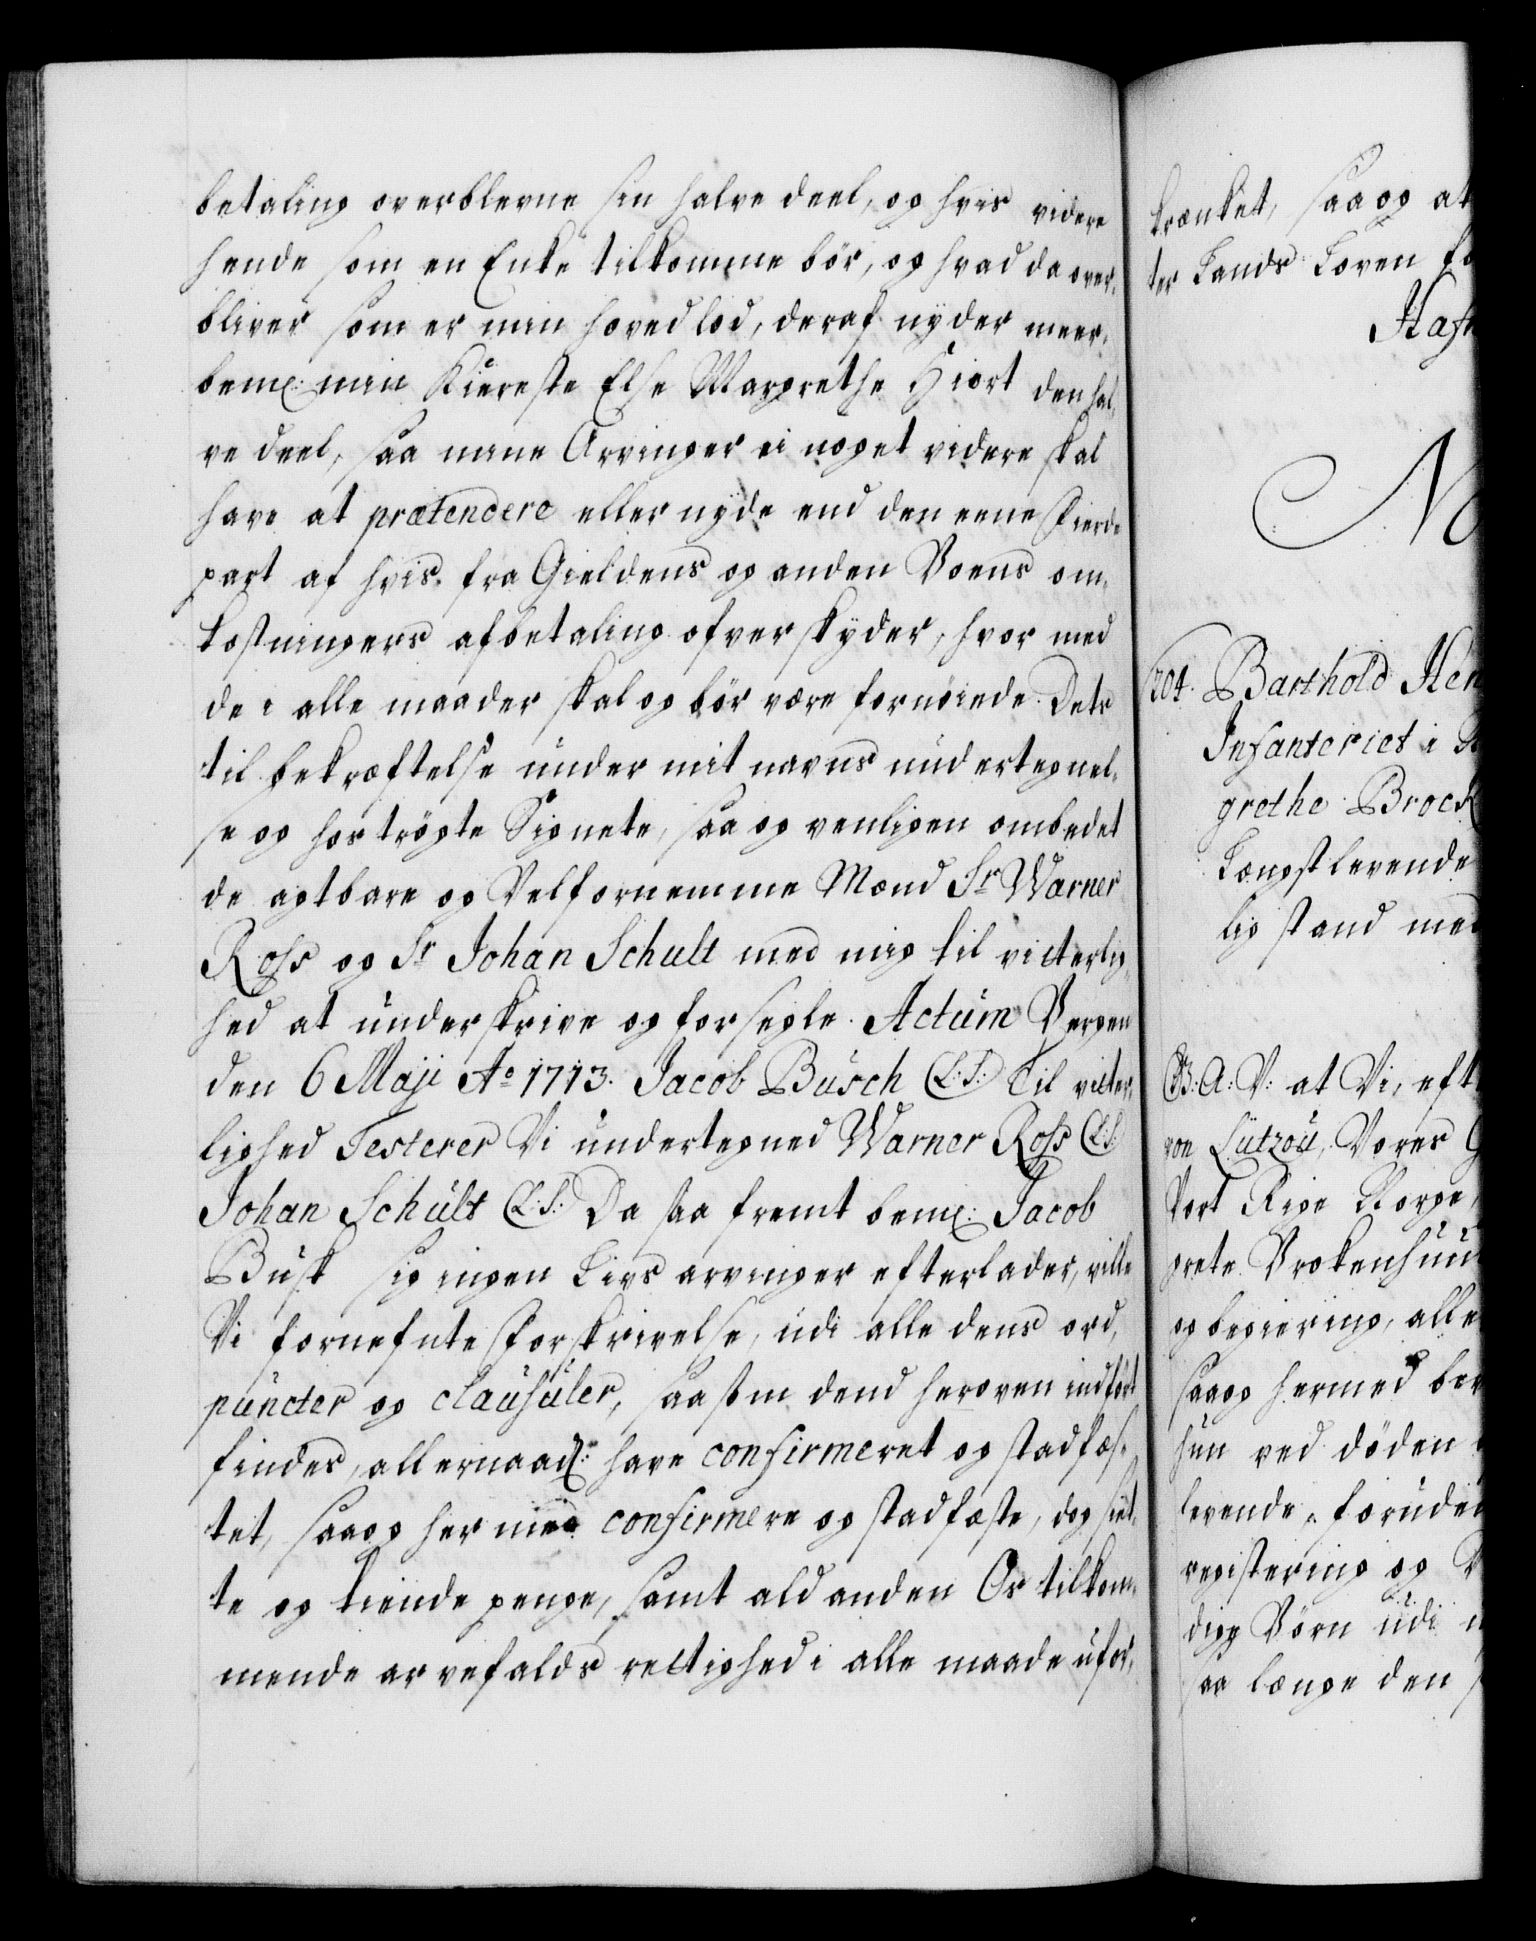 betaling overblevne sin halve deel, og hvis videre
hende som en Enke tilkomme bör, og hvad da over¬
bliver som er min hoved lod, deraf nyder meer¬
bemt: min Kiereste Else Margrethe Hiort den hal¬
ve deel, saa mine Arvinger ei noget videre skal
have at prætendere eller nyde end den eene Fierde
part af hvis fra Gieldens og anden Boens om¬
kostningers afbetaling ofverskyder, hvor med
de i alle maader skal og bör være fornöiede. Dets
til bekræftelse under mit navns undertegnel¬
se og hoströgte Signete, saa og venligen ombedet
de agtbare og Velfornemme Mænd Sr Warner
Ross og Sr Johan Schult med mig til vitterlig¬
hed at underskrive og forsegle. Actum Bergen
den 6 Maji Ao 1713. Jacob Busch (L.S.) Til vitter¬
lighed Testerer Vi undertegned Warner Ross (L.S.)
Johan Schult (L.S.) Da saa fremt bemt: Jacob
Busk sig ingen Livs arvinger efterlader, ville
Vi fornefnte Forskrivelse, udi alle dens ord,
puncter og clausuler, saasom dend heroven indfört
findes, allernaadt: have confirmeret og stadfæs¬
tet, saa og her med confirmere og stadfæste, dog siet¬
te og tiende penge, samt ald anden Os tilkom¬
mende arvefalds rettighed i alle maade ufor¬
krænket, saa og at
ter Lands Loven
Hafn
304. Barthold Hen
Infanteriet i
grethe Brock
Længstlevende
lig stand med
G.B: A: V: at Vi, eft
von Lützou, Vores
Vort Rige Norge,
grete Brokenhuus
og begiering, alle
saa og hermed bev
hun ved döden
levende, foruden
registering og
dige Börn udi
saa længe den